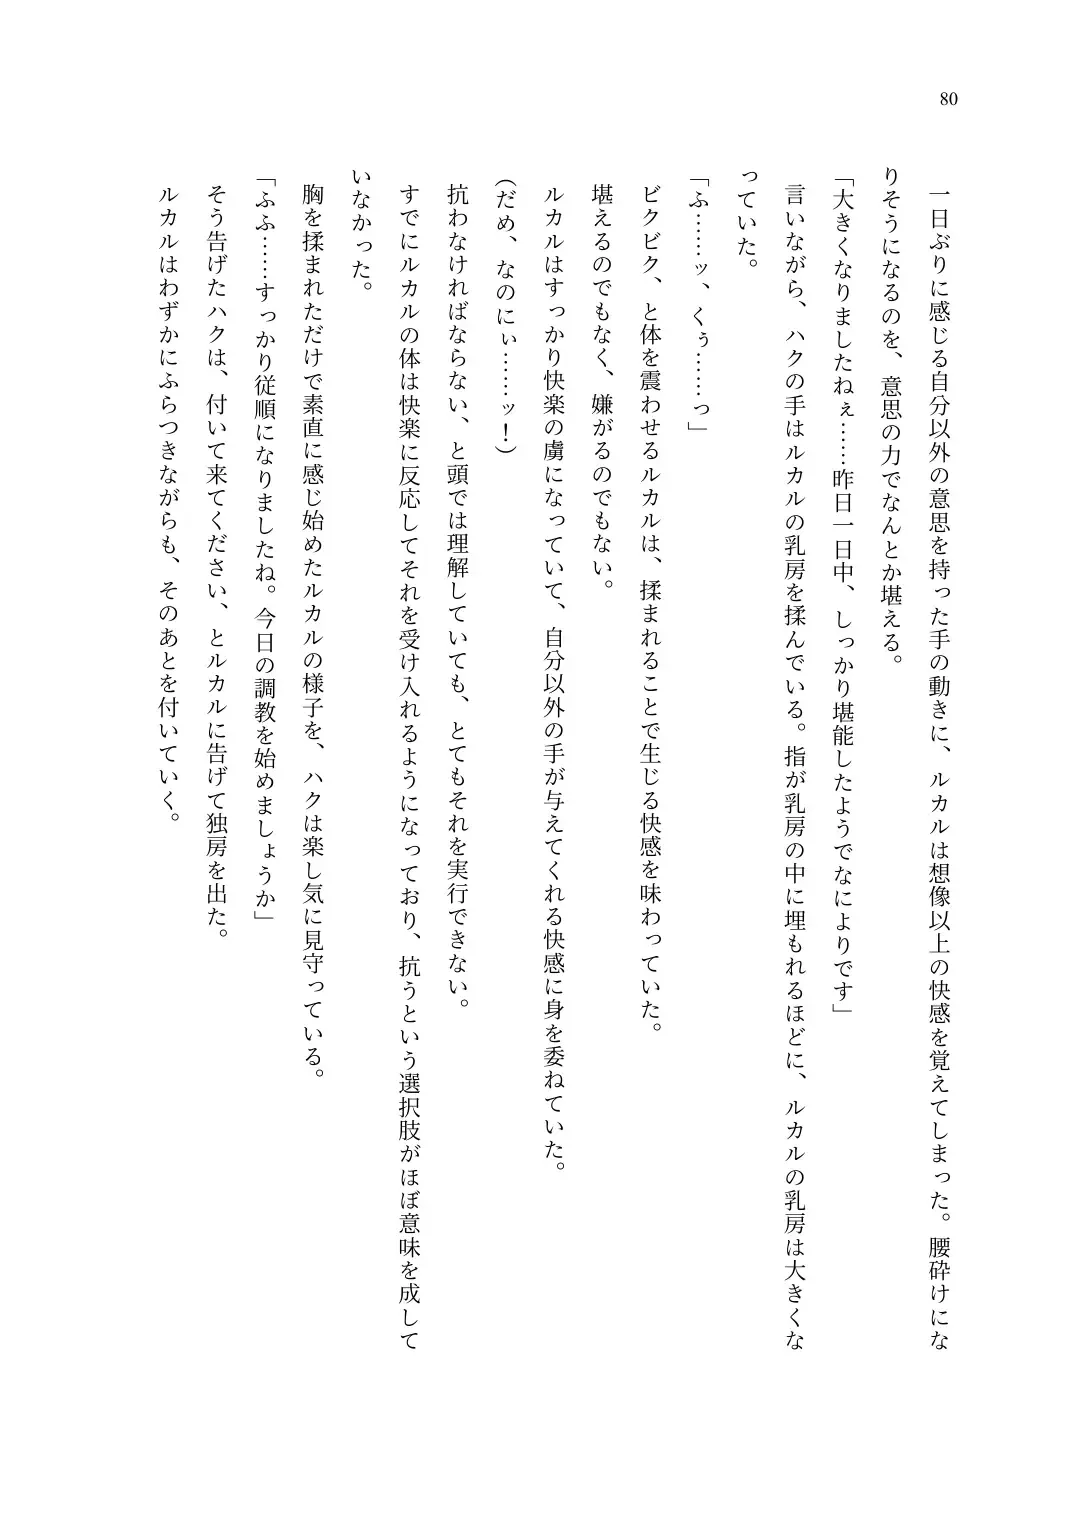 80
　一日ぶりに感じる自分以外の意思を持った手の動きに、ルカルは想像以上の快感を覚えてしまった。腰砕けにな
りそうになるのを、意思の力でなんとか堪える。
「大きくなりましたねぇ……昨日一日中、しっかり堪能したようでなによりです」
　言いながら、ハクの手はルカルの乳房を揉んでいる。指が乳房の中に埋もれるほどに、ルカルの乳房は大きくな
っていた。
「ふ……ッ、くぅ……っ」
　ビクビク、と体を震わせるルカルは、揉まれることで生じる快感を味わっていた。
　堪えるのでもなく、嫌がるのでもない。
　ルカルはすっかり快楽の虜になっていて、自分以外の手が与えてくれる快感に身を委ねていた。
（だめ、なのにぃ……ッ！）
　抗わなければならない、と頭では理解していても、とてもそれを実行できない。
　すでにルカルの体は快楽に反応してそれを受け入れるようになっており、抗うという選択肢がほぼ意味を成して
いなかった。
　胸を揉まれただけで素直に感じ始めたルカルの様子を、ハクは楽し気に見守っている。
「ふふ……すっかり従順になりましたね。今日の調教を始めましょうか」
　そう告げたハクは、付いて来てください、とルカルに告げて独房を出た。
　ルカルはわずかにふらつきながらも、そのあとを付いていく。